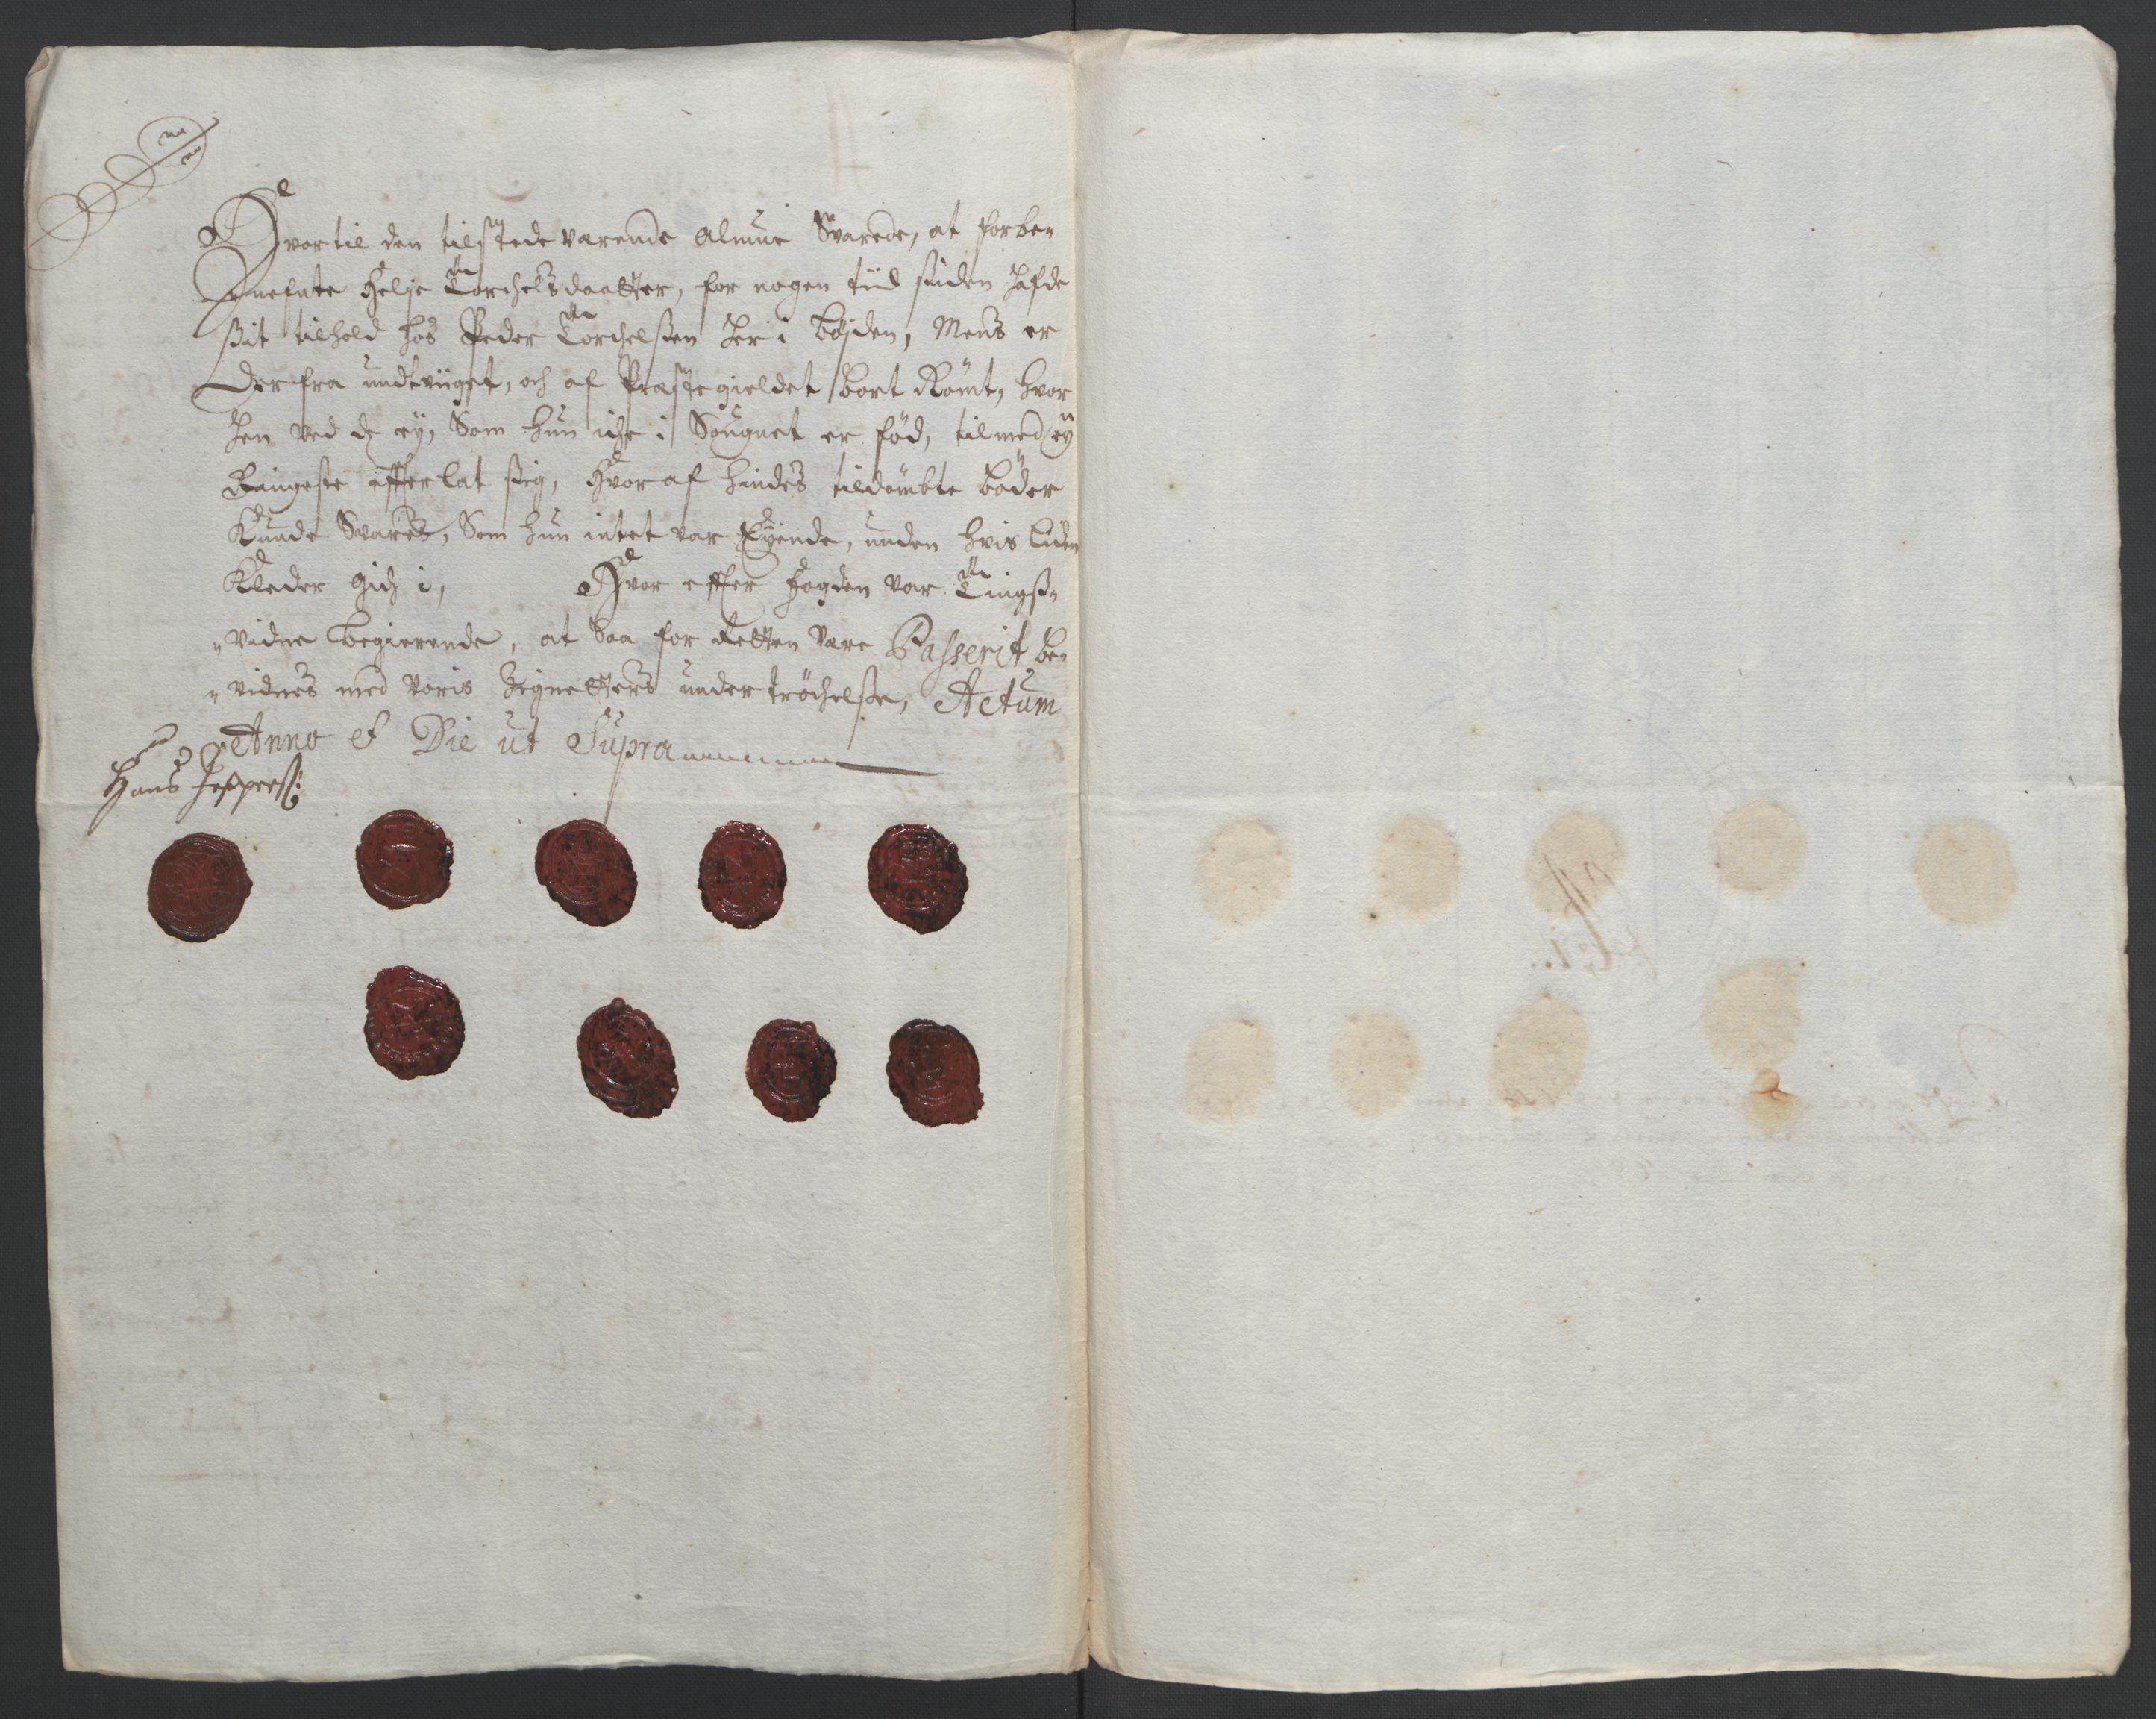 Hvortil den tilstede varende Almue Svarede, at forbe„
„nefnte Helje Torchelsdaatter, for nogen tiid siden hafde
sit tilhold hos Peder Torchelssen her i böjden, Mens er
Derfra undtviiget, och af Præstegieldet bort Römt, hvor
hen ved de ey, Som hun iche i Sougnet er fød, tilmed ey
Ringeste effterlat sig, Hvoraf hindes tildömbte böder
Kunde Svares, Som hun intet var Eyende, unden hvis liden
Kleder gich i, Hvor effter Fogden var Tingß„
„vidne begierende, at Saa for Retten Være Passerit be„
„vidnes med Voris Zignetters undertröchelse, Actum
Anno et Die ut Supra
Hans Jeppess: